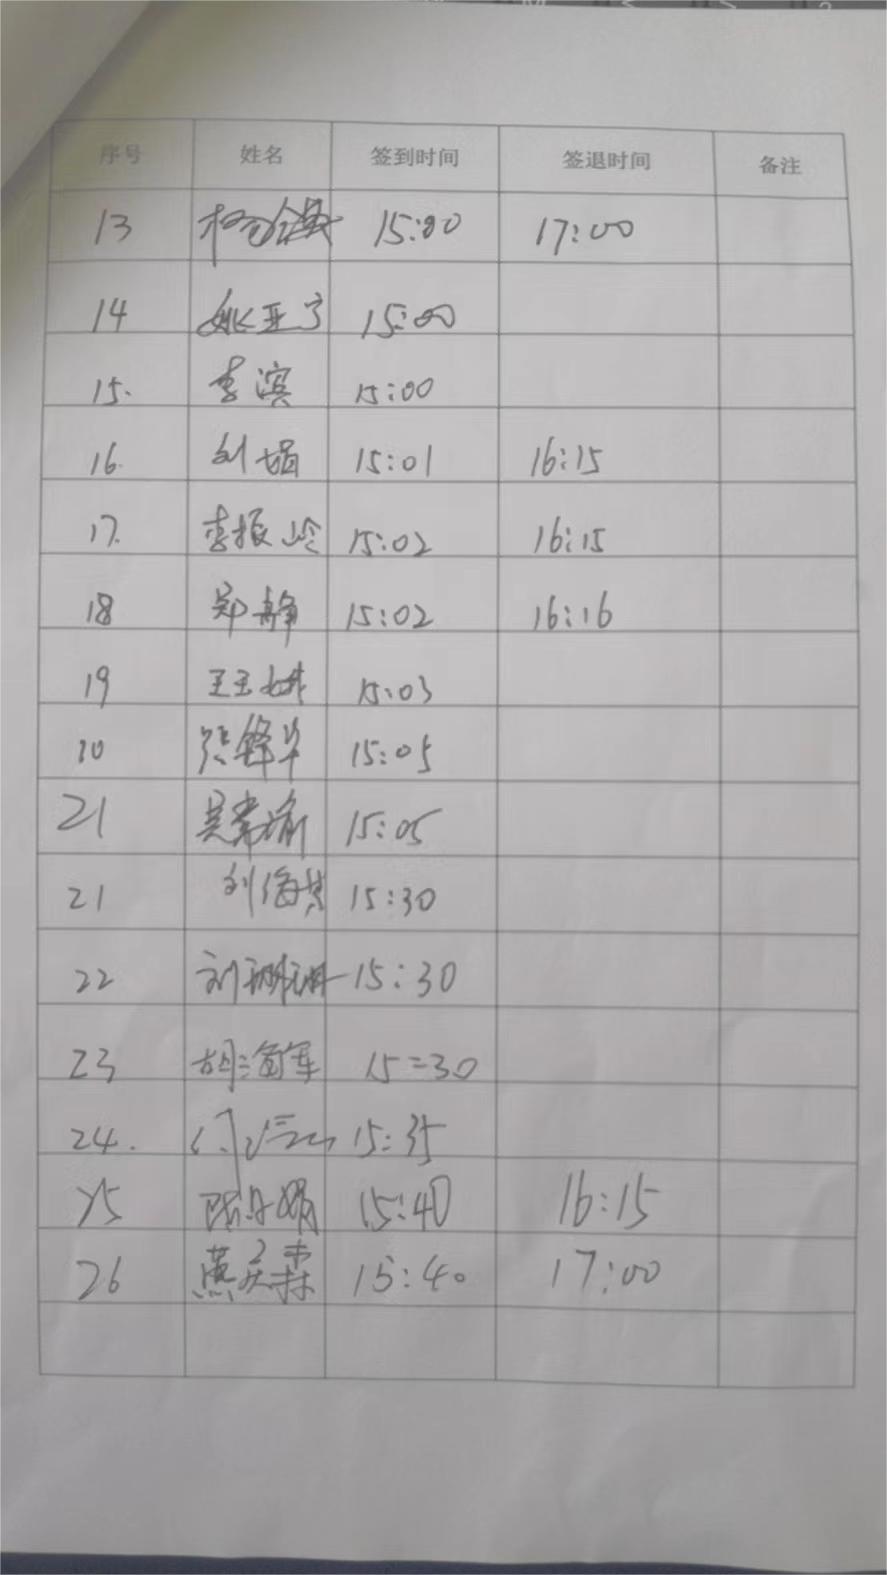 序号 姓名 签到时间 签退时间 备注
13 15:00 17:00
14 姚亚宁 15:00
15. 李滨 15:00
16. 刘娟 15:01 16:15
17. 李振岭 15:02 16:15
18 郑静 15:02 16:16
19 王玉 15:03
20 张锋华 15:05
21 吴 瑜 15:05
21 刘海 15:30
22 刘珊珊 15:30
23 胡海军 15:30
24. 15:35
25 陈 娟 15:40 16:15
26 燕庆森 15:40 17:00